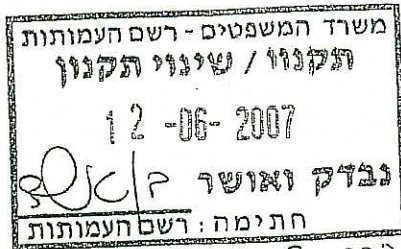 משרד המשפטים - רשם העמותות
תקנון / שינוי תקנון
12-06-2007
נבדק ואושר
חתימה: רשם העמותות